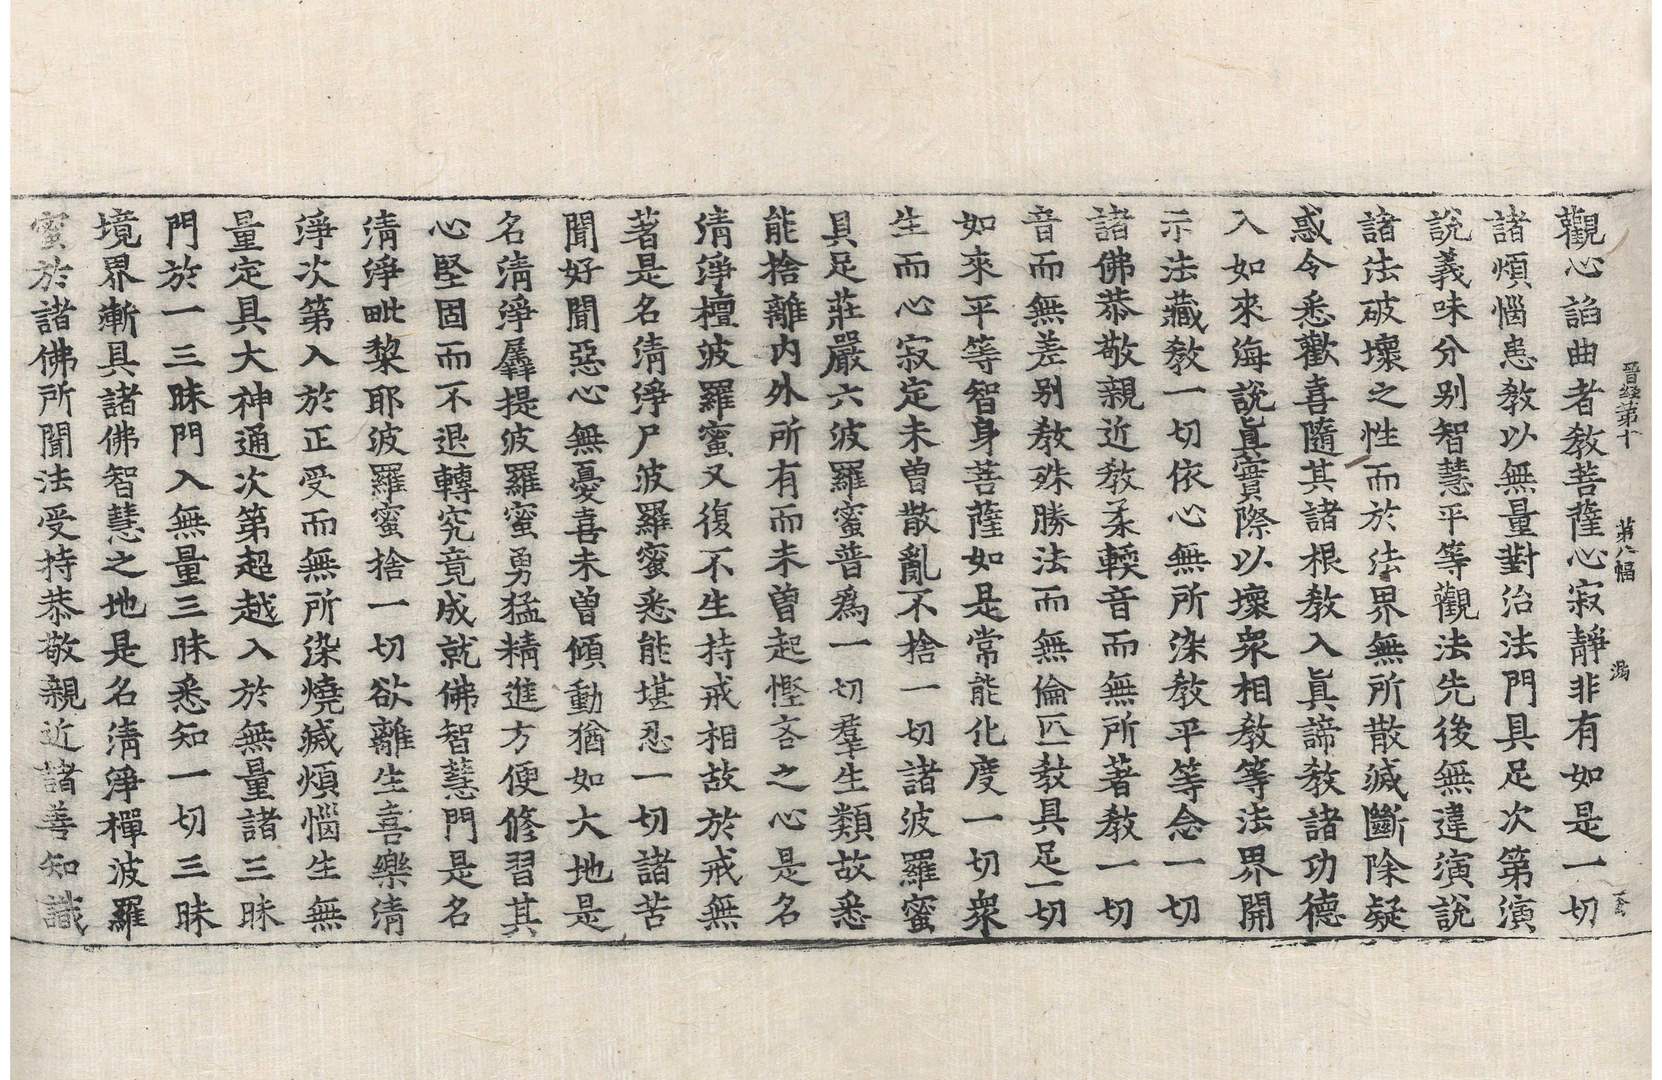 晉經第十　第八幅　溈
觀心諂曲者教菩薩心寂靜非有如是一切
諸煩惱患教以無量對治法門具足次第演
說義味分別智慧平等觀法先後無違演說
諸法破壞之性而於法界無所散滅斷除疑
惑令悉歡喜隨其諸根教入眞諦教諸功德
入如來海說眞實際以壞衆相教等法界開
示法藏教一切依心無所染教平等念一切
諸佛恭敬親近教柔輭音而無所著教一切
音而無差別教殊勝法而無倫匹教具足一切
如來平等智身菩薩如是常能化度一切衆
生而心寂定未曾散亂不捨一切諸波羅蜜
具足莊嚴六波羅蜜普爲一切羣生類故悉
能捨離內外所有而未曾起慳吝之心是名
清淨檀波羅蜜又復不生持戒相故於戒無
著是名清淨尸波羅蜜悉能堪忍一切諸苦
聞好聞惡心無憂喜未曾傾動猶如大地是
名清淨羼提波羅蜜勇猛精進方便修習其
心堅固而不退轉究竟成就佛智慧門是名
清淨毗黎耶波羅蜜捨一切欲離生喜樂清
淨次第入於正受而無所染燒滅煩惱生無
量定具大神通次第超越入於無量諸三昧
門於一三昧門入無量三昧悉知一切三昧
境界漸具諸佛智慧之地是名清淨禪波羅
蜜於諸佛所聞法受持恭敬親近諸善知識